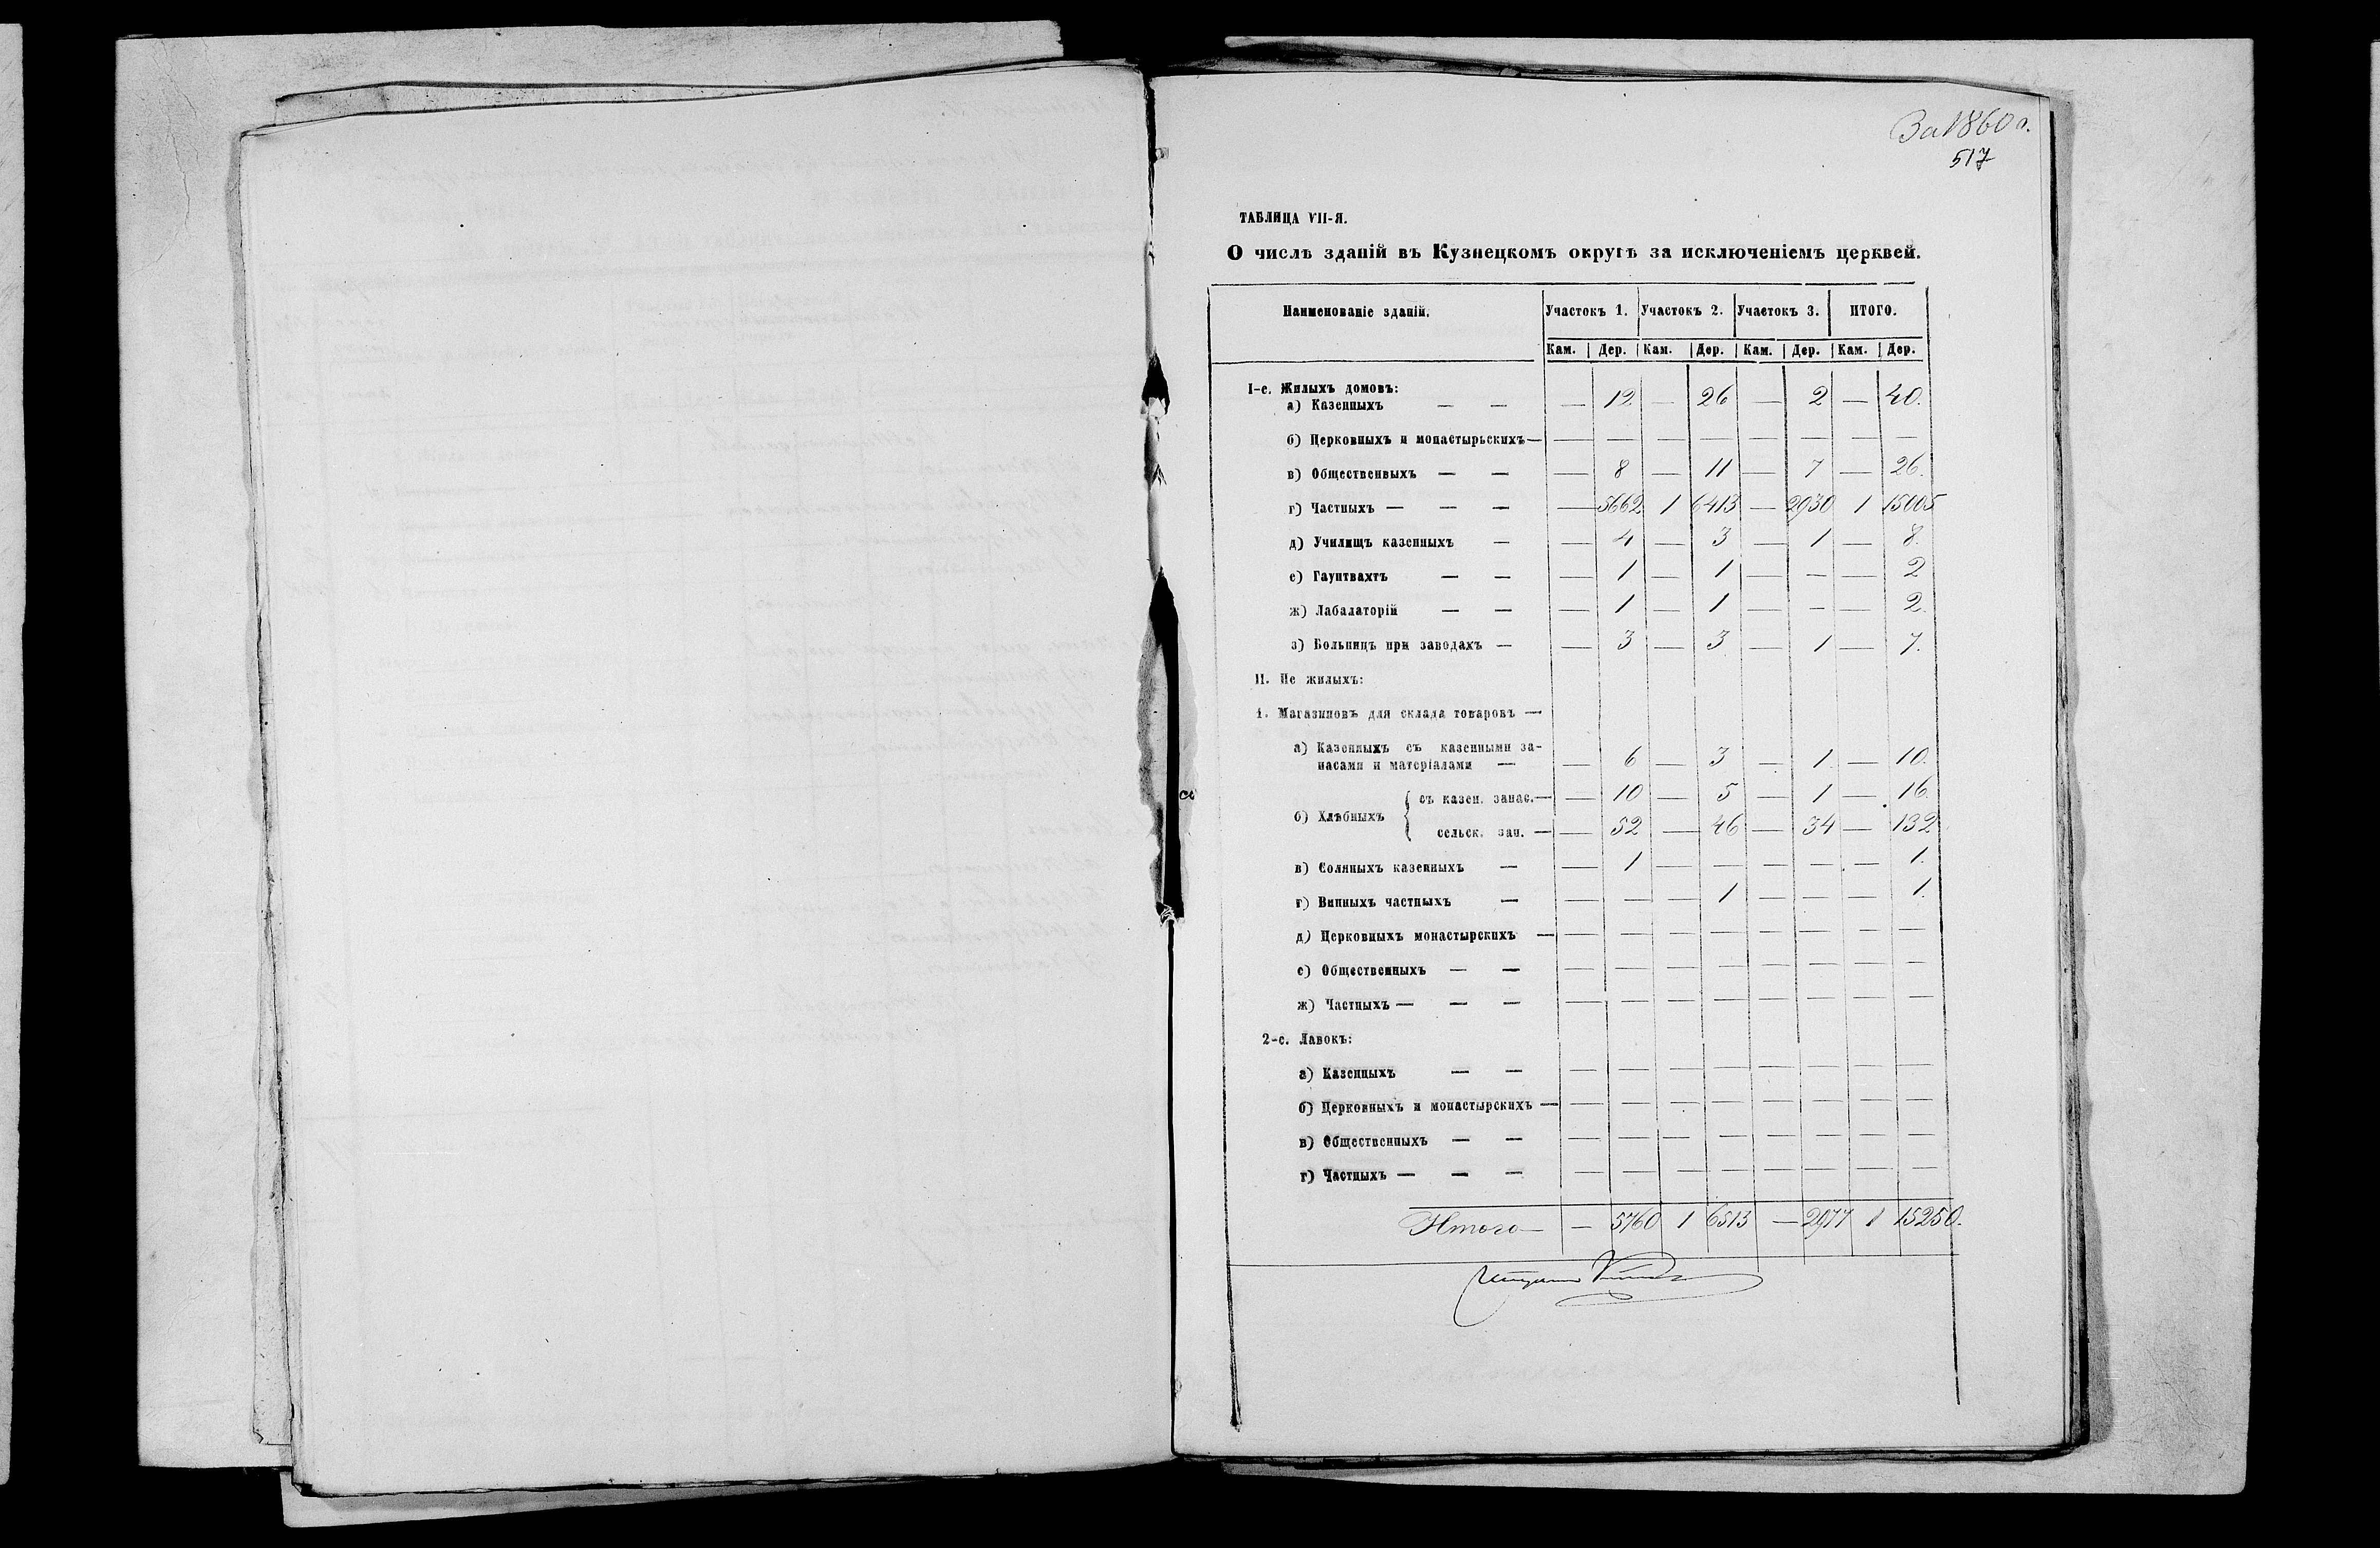 За 1860 г.
517
ТАБЛИЦА VII-Я.
О числѣ зданій въ Кузнецкомъ округѣ за исключеніемъ церквей.
Наименованіе зданій. Участокъ 1. Участокъ 2. Участокъ 3. ИТОГО.
Кам. Дер. Кам. Дер. Кам. Дер. Кам. Дер.
I-е. Жилыхъ домовъ:
а) Казенныхъ — — — 12 — 26 — 2 — 40.
б) Церковныхъ и монастырьскихъ — — — — — — — — —
в) Общественныхъ — — — 8 — 11 — 7 — 26.
г) Частныхъ — — — — 5662 1 6413 — 2930 1 15005
д) Училищъ казенныхъ — — 4 — 3 — 1 — 8.
е) Гауптвахтъ — — — 1 — 1 — — — 2
ж) Лабалаторій — — — 1 — 1 — — — 2.
з) Больницъ при заводахъ — — 3 — 3 — 1 — 7.
II. Не жилыхъ:
1. Магазиновъ для склада товаровъ —
а) Казенныхъ съ казенными за-
пасами и матеріалами — — 6 — 3 — 1 — 10.
б) Хлѣбныхъ { съ казен. запас. — — 10 — 5 — 1 — 16.
сельск. зап. — — 52 — 46 — 34 — 132
в) Соляныхъ казенныхъ — — 1 — — — — — 1.
г) Винныхъ частныхъ — — — — 1 — — — 1.
д) Церковныхъ монастырскихъ — — — — — — — — —
е) Общественныхъ — — — — — — — — — —
ж) Частныхъ — — — — — — — — — — —
2-е. Лавокъ:
а) Казенныхъ — — — — — — — — — —
б) Церковныхъ и монастырскихъ — — — — — — — — —
в) Общественныхъ — — — — — — — — — —
г) Частныхъ — — — — — — — — — — —
Итого — — 5760 1 6513 — 2977 1 15250.